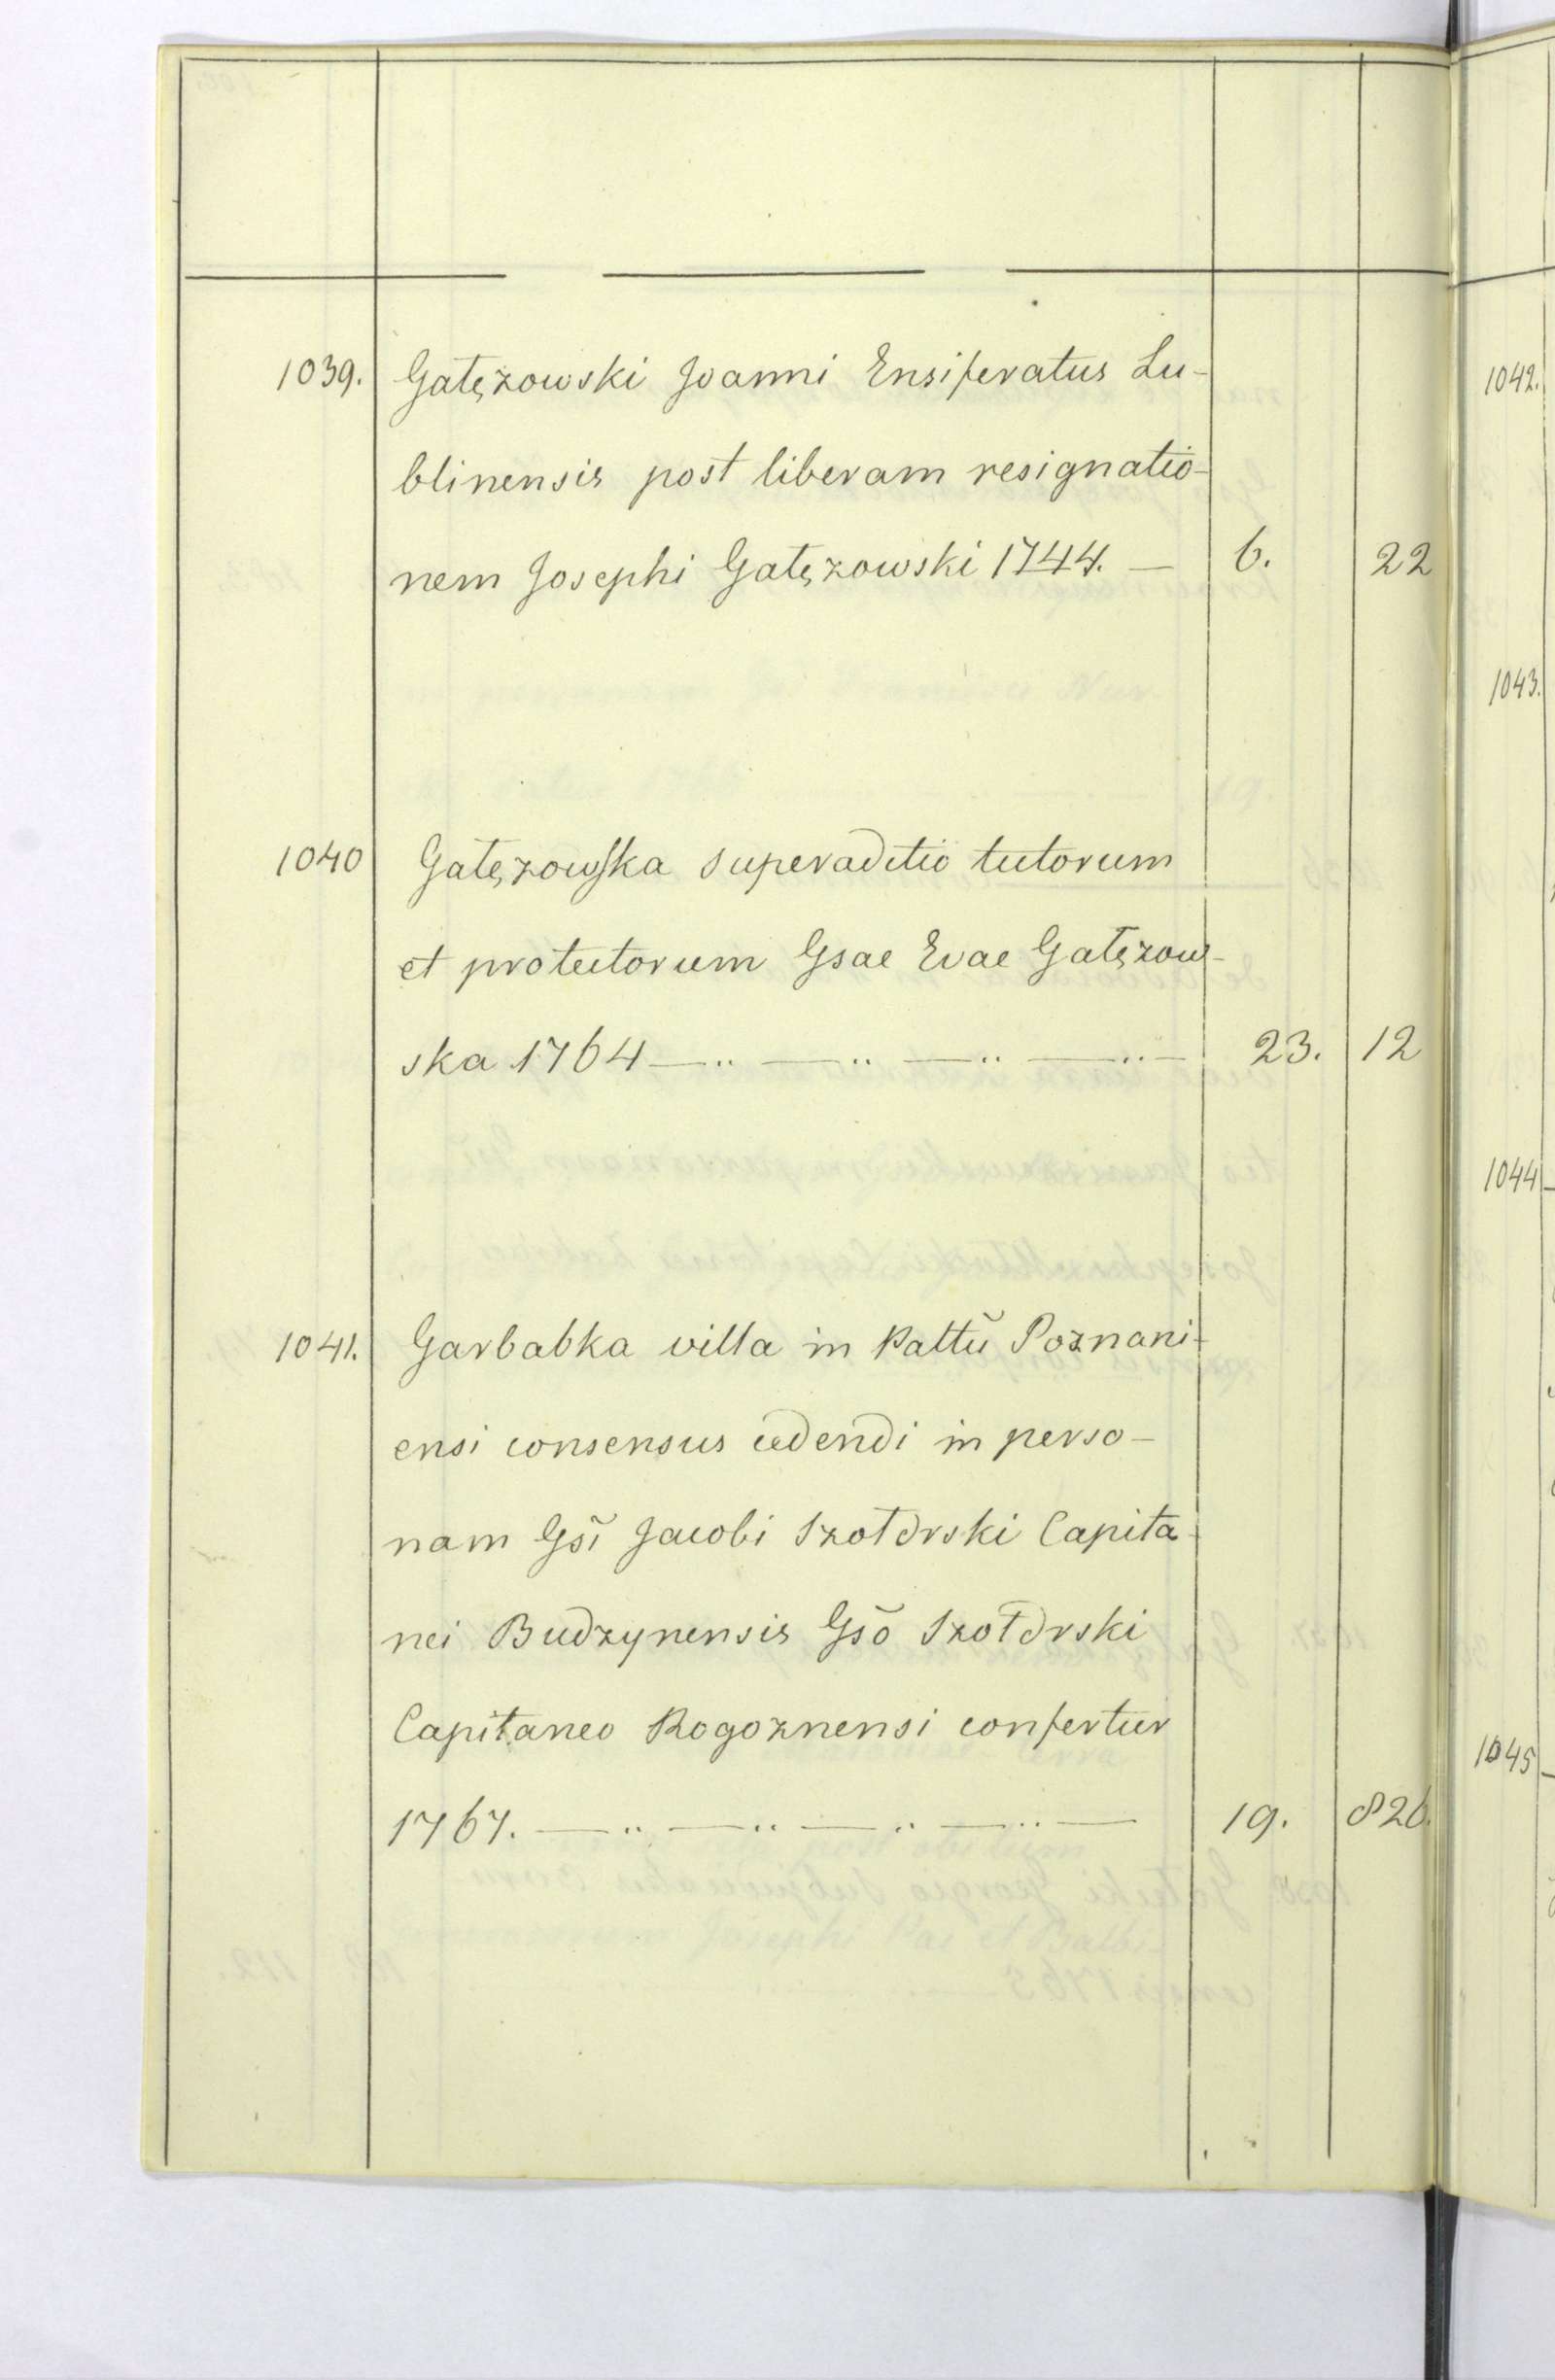 1039. Gałęzowski Joanni Ensiferatus Lu-
blinensis post liberam resignatio-
nem Josephi Gałęzowski 1744. — 6. 22
1040 Gałęzowska superaditio tutorum
et protutorum Gsae Evae Gałęzow-
ska 1764 —..—..—..—..— 23. 12
1041. Garbabka villa in Pattũ Poznani-
ensi consensus cedendi in perso-
nam Gsi Jacobi Szołdrski Capita-
nei Budzynensis Gsõ Szołdrski
Capitaneo Rogoznensi confertur
1767. —..—..—..—..— 19. 826.
1042.
1043.
1044
1045